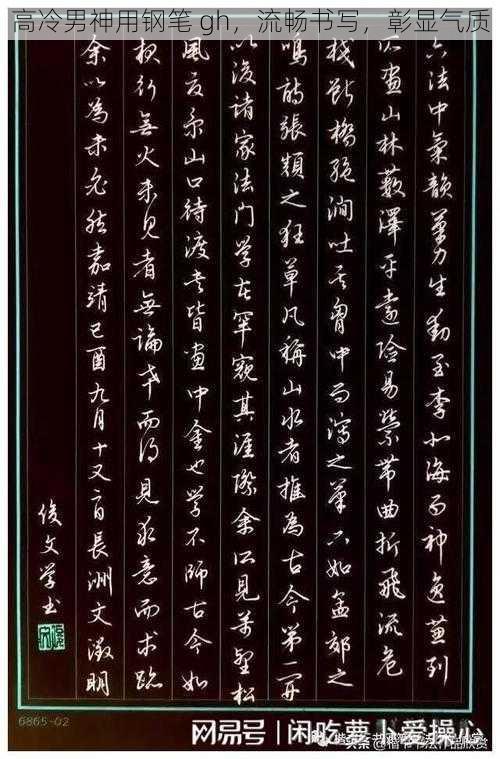 高冷男神用钢笔 gh，流畅书写，彰显气质
六法中氣韻筆力生動至李北海而神逸兼到
所畫山林藪澤平遠險易縈帶曲折飛流危
棧斷橋絕澗吐其胸中而瀉之筆下如孟郊之
鳴詩張顛之狂草凡稱山水者推為古今第一
以後諸家法門學者罕窺其涯際余所見萬壑松
風夏禾山口待渡卷皆畫中金也學不師古今如
夜行無火未見者無論幸而得見求意而求跡
余以為未必然嘉靖己酉九月十又二日長洲文徵明
俊文學书
6865-02
网易号 | 闲吃萝卜爱操心